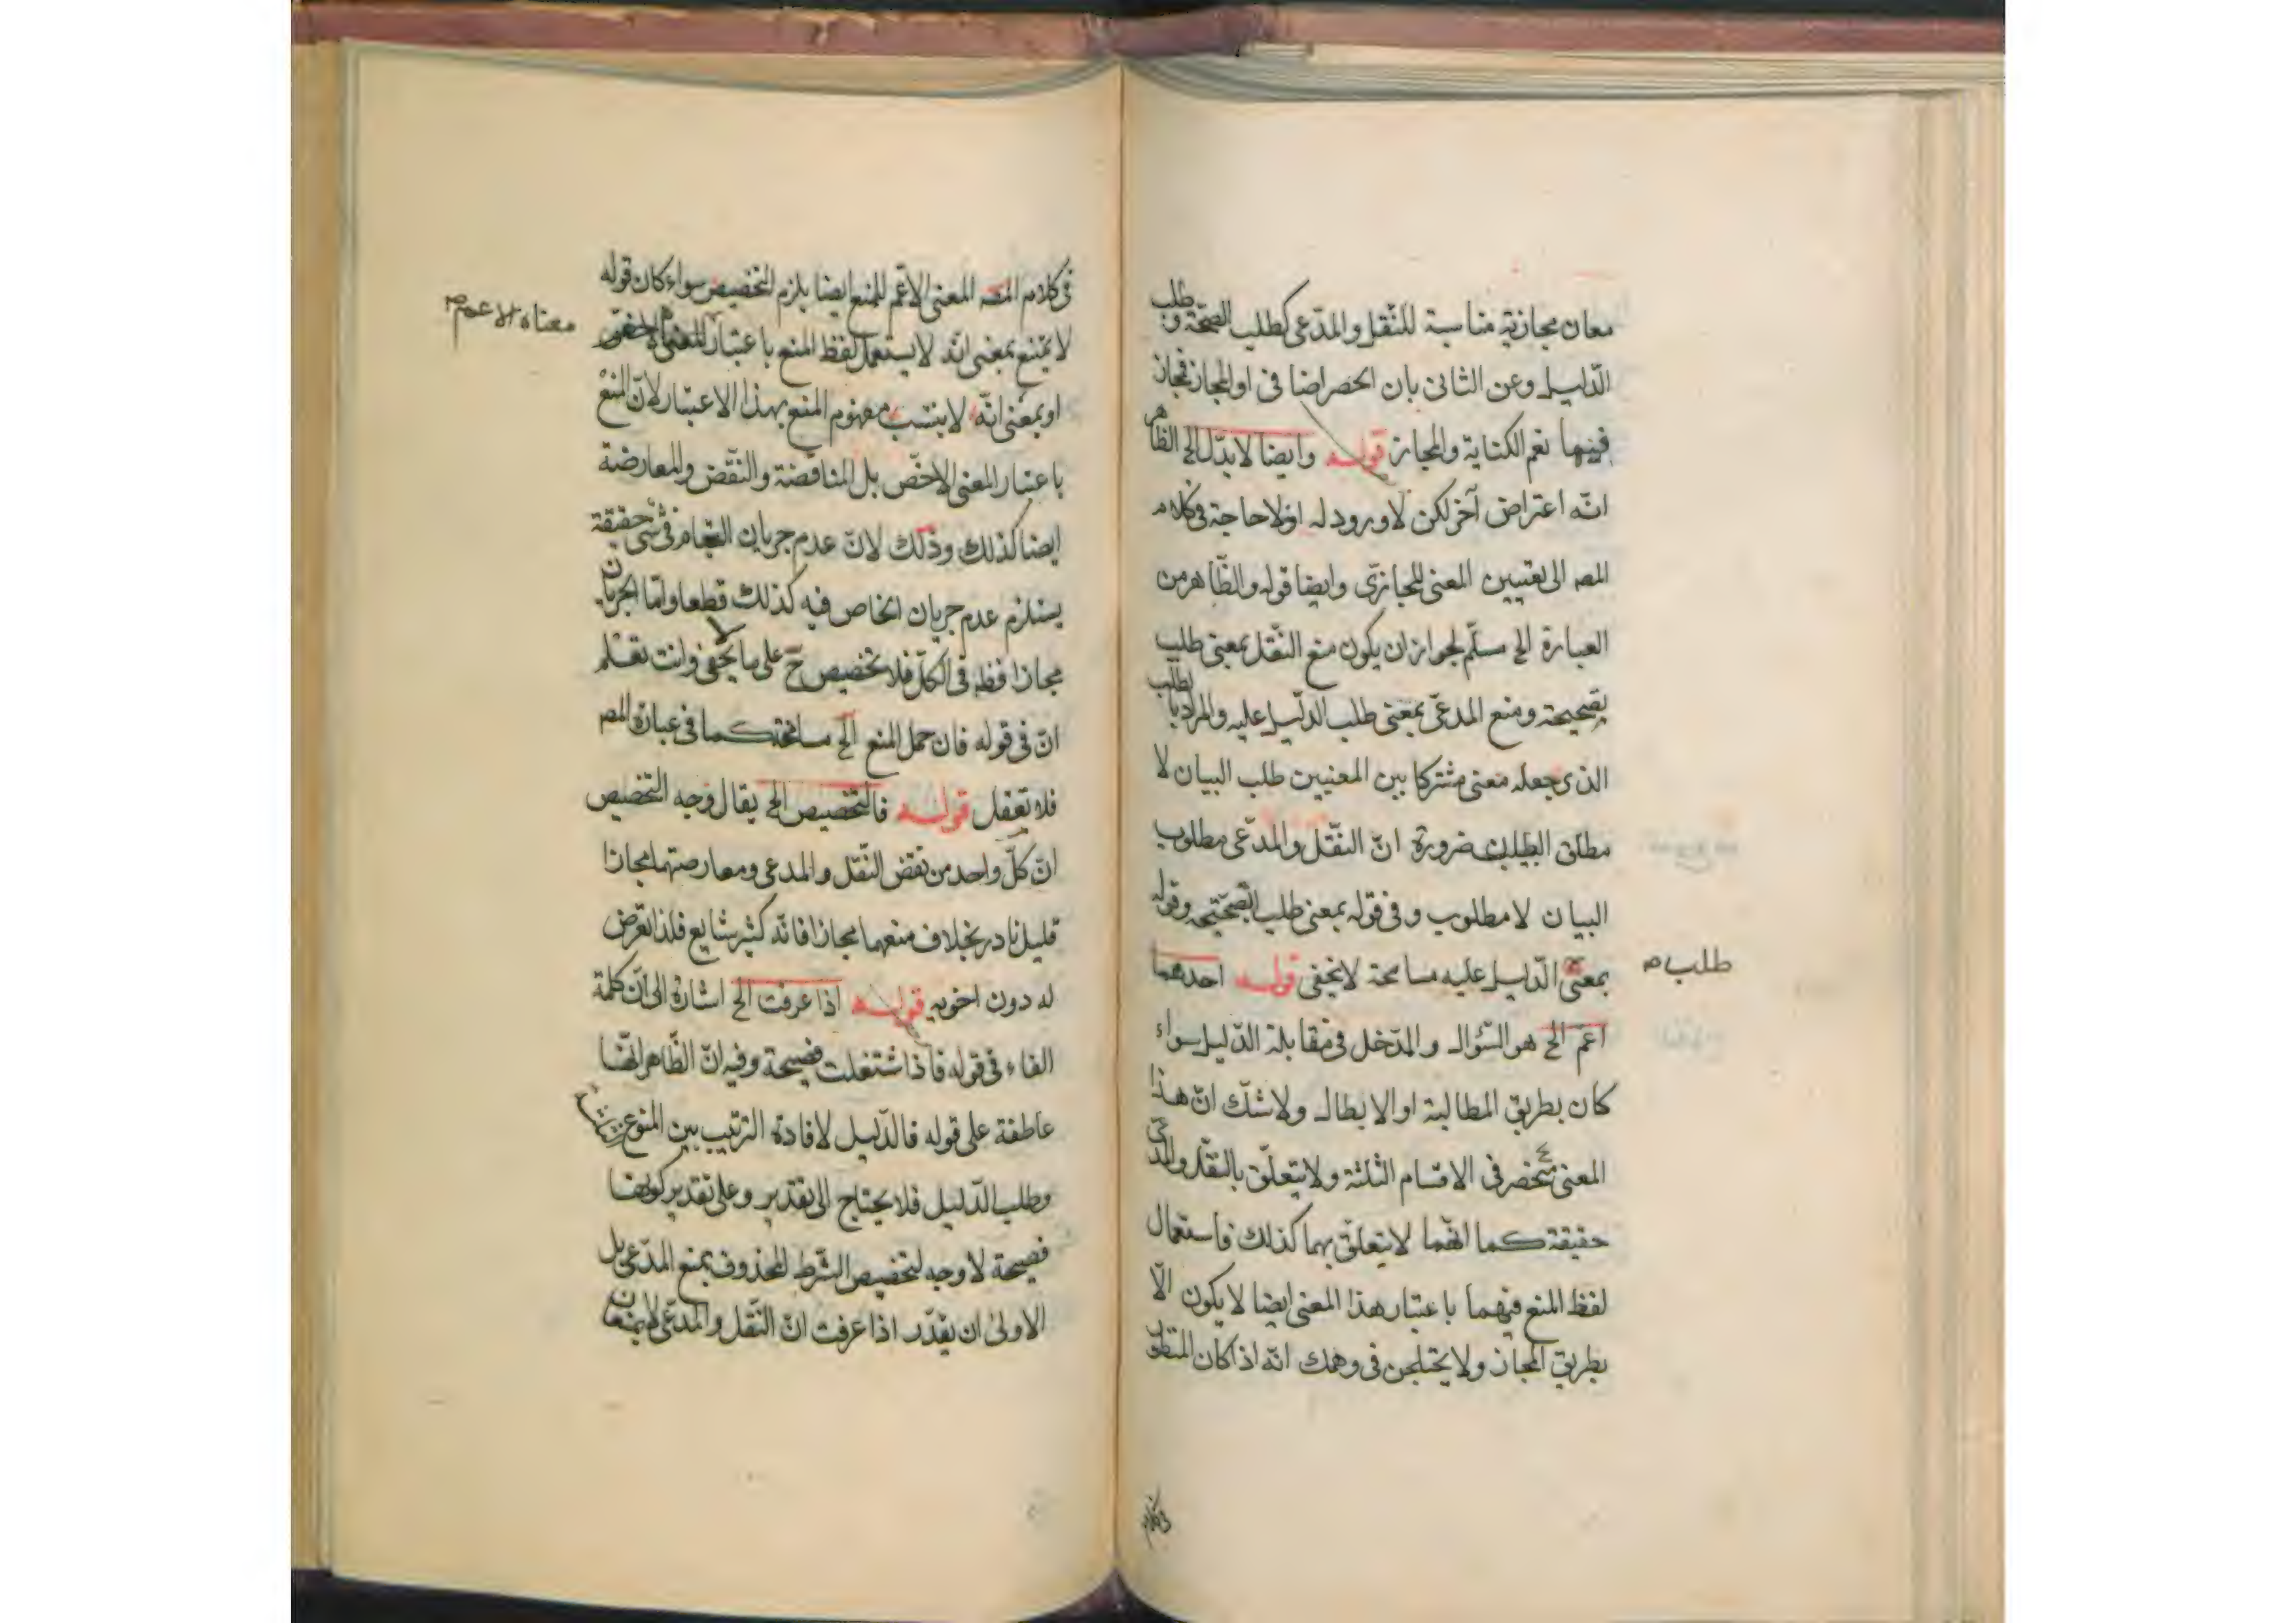 معان مجازية مناسبة للنقل والمدّعى كطلب الصحّة وطلب
الدّليل وعن الثانى بان الحصر اضا فى او المجاز فجاز
فيهما نعم الكناية والمجاز قوله وايضا لا بدّل الخ الظاهر
انّه اعتراض آخر لكن لا ورود له اذ لا حاجة فى كلام
المصـ الى تعيين المعنى المجازىّ وايضا قوله والظّاهر من
العبارة الخ مسلّم لجواز ان يكون منع النّقل بمعنى طلب
تصحيحه ومنع المدعىّ بمعنى طلب الدّليل عليه والمراد بالطلب
الذى جعله معنى مشتركا بين المعنيين طلب البيان لا
مطلق الطلب ضرورة انّ النّقل والمدّعى مطلوب
البيان لا مطلوب وفى قوله بمعنى طلب التصحيح وقوله
بمعنى الدّليل عليه مسامحة لا تخفى قوله احدهما
طلب صح
اعم الخ هو السّؤال والمدّخل فى مقابلة الدّليل سواء
كان بطريق المطالبة او الابطال ولا شكّ انّ هذا
المعنى منحصر فى الاقسام الثلثة ولا يتعلّق بالنقل والمدّعى
حقيقة كما انّهما لا يتعلق بهما كذلك فاستعمال
لفظ المنع فيهما باعتبار هذا المعنى ايضا لا يكون الّا
بطريق المجاز ولا يختلجن فى وهمك انّه اذا كان المنطوق
فى كلام
فى كلام المصـ المعنى الاعّم للمنع ايضا يلزم التخصيص سواء كان قوله
لا يمنع بمعنى انّه لا يستعمل لفظ المنع باعتبار المعنى الاخص
معناه الاعم صح
او بمعنى انّه لا ينتسب مفهوم المنع بهذا الاعتبار لانّ المنع
باعتبار المعنى الاخصّ بل المناقضة والنّقض والمعارضة
ايضا كذلك وذلك لانّ عدم جريان العام فى شئ حقيقة
يستلزم عدم جريان الخاص فيه كذلك قطعا وامّا الجريان
مجازا فظـ فى الكلّ فلا تخصيص حّ على ما لا يخفى وانت تعلم
انّ فى قوله فان حمل المنع الخ مسامحة كما فى عبارة المصـ
فلا تغفل قوله فالتخصيص الخ يقال وجه التخصيص
انّ كلّ واحد من نقض النّقل والمدعى ومعارضتهما مجازا
قليل نادر بخلاف منعهما مجازا فانّه كثير شايع فلذا تعرض
له دون اخويه قوله اذا عرفت الخ اشارة الى انّ كلمة
الفاء فى قوله فاذا شتغلت فصيحة وفيه انّ الظّاهر انّها
عاطفة على قوله فالدّليل لافادة الترتيب بين المنوع
وطلب الدّليل فلا يحتاج الى تقدير وعلى تقدير كونها
فصيحة لا وجه لتخصيص الشّرط المحذوف بمنع المدّعى بل
الاولى ان يقدّر اذا عرفت انّ النّقل والمدّعى لا يمنعان